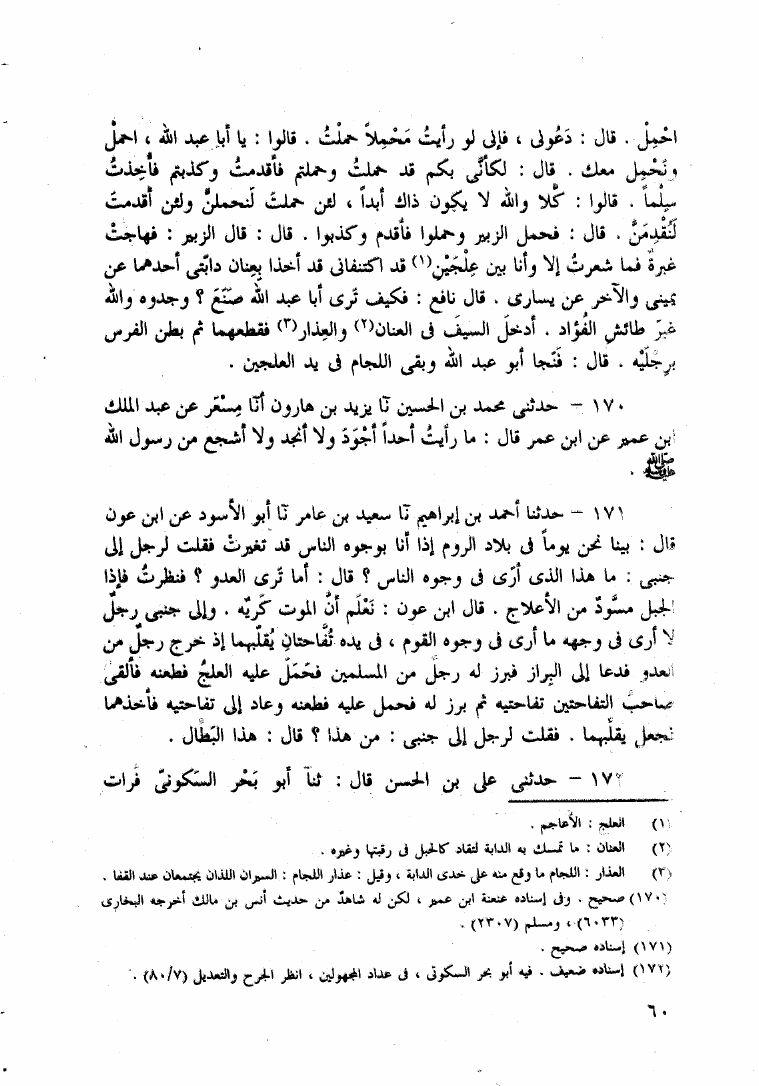 احْمِلْ . قال : دَعُونى ، فإنى لو رأيتُ مَحْمِلاً حملْتُ . قالوا : يا أبا عبد الله ، احملْ
ونَحْمِل معك . قال : لكأنّى بكم قد حملتُ وحملتم فأقدمتُ وكذبتم فأُخِذتُ
سِلْماً . قالوا : كَّلا والله لا يكون ذاك أبداً ، لئن حملتَ لَنحملنَّ ولئن أقدمتَ
لَنُقْدِمَنَّ . قال : فحمل الزبير وحملوا فأقدم وكذبوا . قال : قال الزبير : فهاجتْ
غبرةٌ فما شعرتُ إلا وأنا بين عِلْجَيْن(١) قد اكتنفانى قد أخذا بِعِنان دابّتى أحدهما عن
يمينى والآخر عن يسارى . قال نافع : فكيف تَرى أبا عبد الله صَنَعَ ؟ وجدوه والله
غيرَ طائشِ الفُؤاد . أدخلَ السيفَ فى العنان(٢) والعِذار(٣) فقطعهما ثم بطن الفرس
برِجلَيْه . قال : فَنَجا أبو عبد الله وبقى اللجام فى يد العلجين .
١٧٠ – حدثنى محمد بن الحسين نَا يزيد بن هارون أنَا مِسْعَر عن عبد الملك
ابن عمير عن ابن عمر قال : ما رأيتُ أحداً أجْوَدَ ولا أنجد ولا أشجع من رسول الله
ﷺ .
١٧١ – حدثنا أحمد بن إبراهيم نَا سعيد بن عامر نَا أبو الأسود عن ابن عون
قال : بينا نحن يوماً فى بلاد الروم إذا أنا بوجوه الناس قد تغيرتْ فقلت لرجل إلى
جنبى : ما هذا الذى أرَى فى وجوه الناس ؟ قال : أما تَرى العدو ؟ فنظرتُ فإذا
الجبل مسْوَدٌ من الأعلاج . قال ابن عون : نَعْلَم أنَّ الموت كَرِيّه . وإلى جنبى رجلٌ
لا أرى فى وجهه ما أرى فى وجوه القوم ، فى يده تُفَّاحتانِ يُقلّبهما إذ خرج رجلٌ من
العدو فدعا إلى البِراز فبرز له رجلٌ من المسلمين فحَمَلَ عليه العلجُ فطعنه فألقىَ
صاحبُ التفاحتين تفاحتيه ثم برز له فحمل عليه فطعنه وعاد إلى تفاحتيه فأخذهما
فجعل يقلّبهما . فقلت لرجل إلى جنبى : من هذا ؟ قال : هذا البَطَّال .
١٧٢ – حدثنى على بن الحسن قال : ثنَا أبو بَحْر السَكونىّ فُرات
(١) العلج : الأعاجم .
(٢) العنان : ما تمسك به الدابة لتقاد كالحبل فى رقبتها وغيره .
(٣) العذار : اللجام ما وقع منه على خدى الدابة ، وقيل : عذار اللجام : السيران اللذان يجتمعان عند القفا .
(١٧٠) صحيح . وفى إسناده عنعنة ابن عمير ، لكن له شاهدٌ من حديث أنس بن مالك أخرجه البخارى
(٦٠٣٣) ، ومسلم (٢٣٠٧) .
(١٧١) إسناده صحيح .
(١٧٢) إسناده ضعيف . فيه أبو بحر السكونى ، فى عداد المجهولين ، انظر الجرح والتعديل (٨٠/٧) .
٦٠